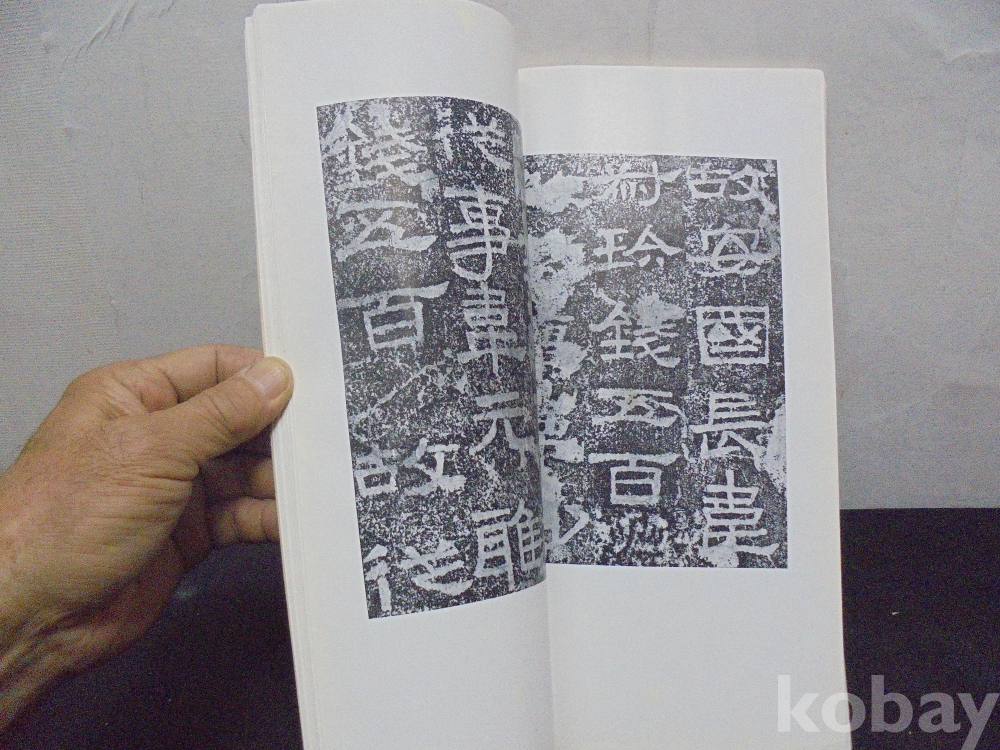 故安國長韋
叔珍錢五百
從事韋元雅
錢五百故從